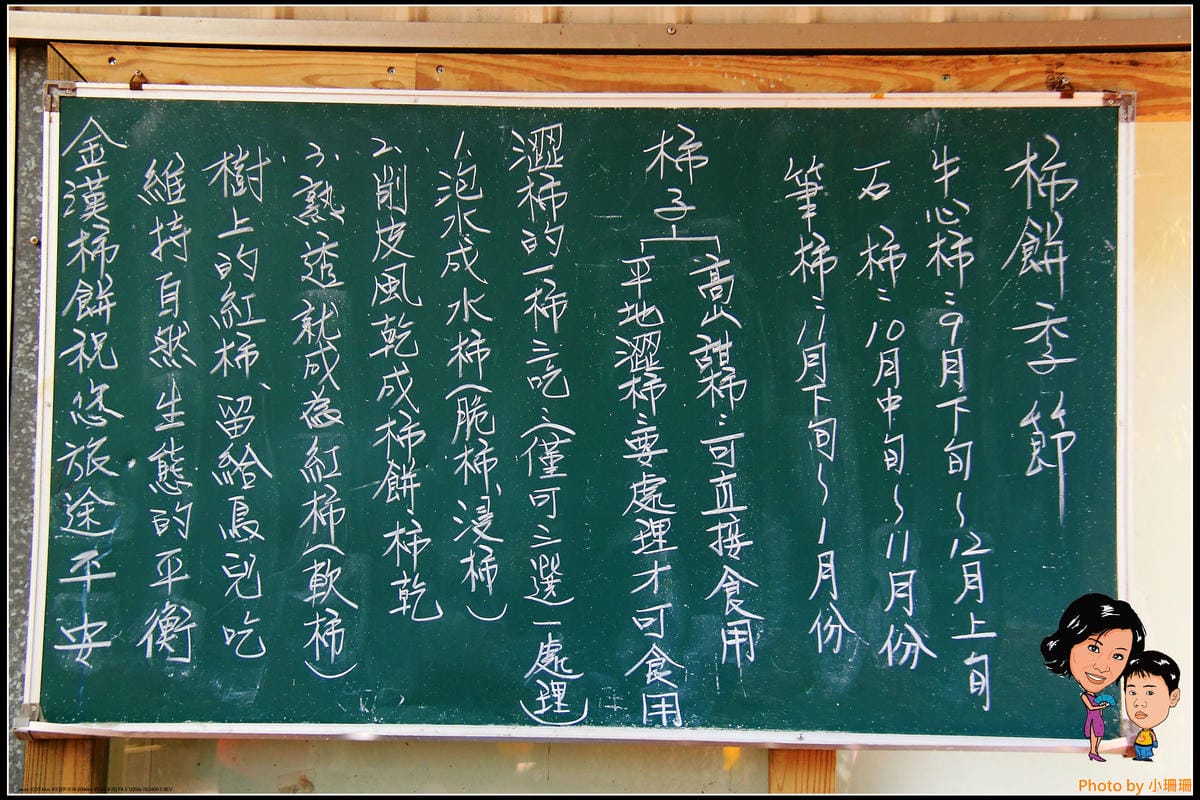 柿餅季節
牛心柿：9月下旬～12月上旬
石　柿：10月中旬～11月份
筆柿：11月下旬～1月份
柿子
高山甜柿：可直接食用
平地澀柿：要處理才可食用
澀柿的一柿三吃（僅可三選一處理）
1、泡水成水柿（脆柿、浸柿）
2、削皮風乾成柿餅、柿乾
3、熟透就成為紅柿（軟柿）
樹上的紅柿、留給鳥兒吃
維持自然生態的平衡
金漢柿餅祝您旅途平安
Photo by 小珊珊